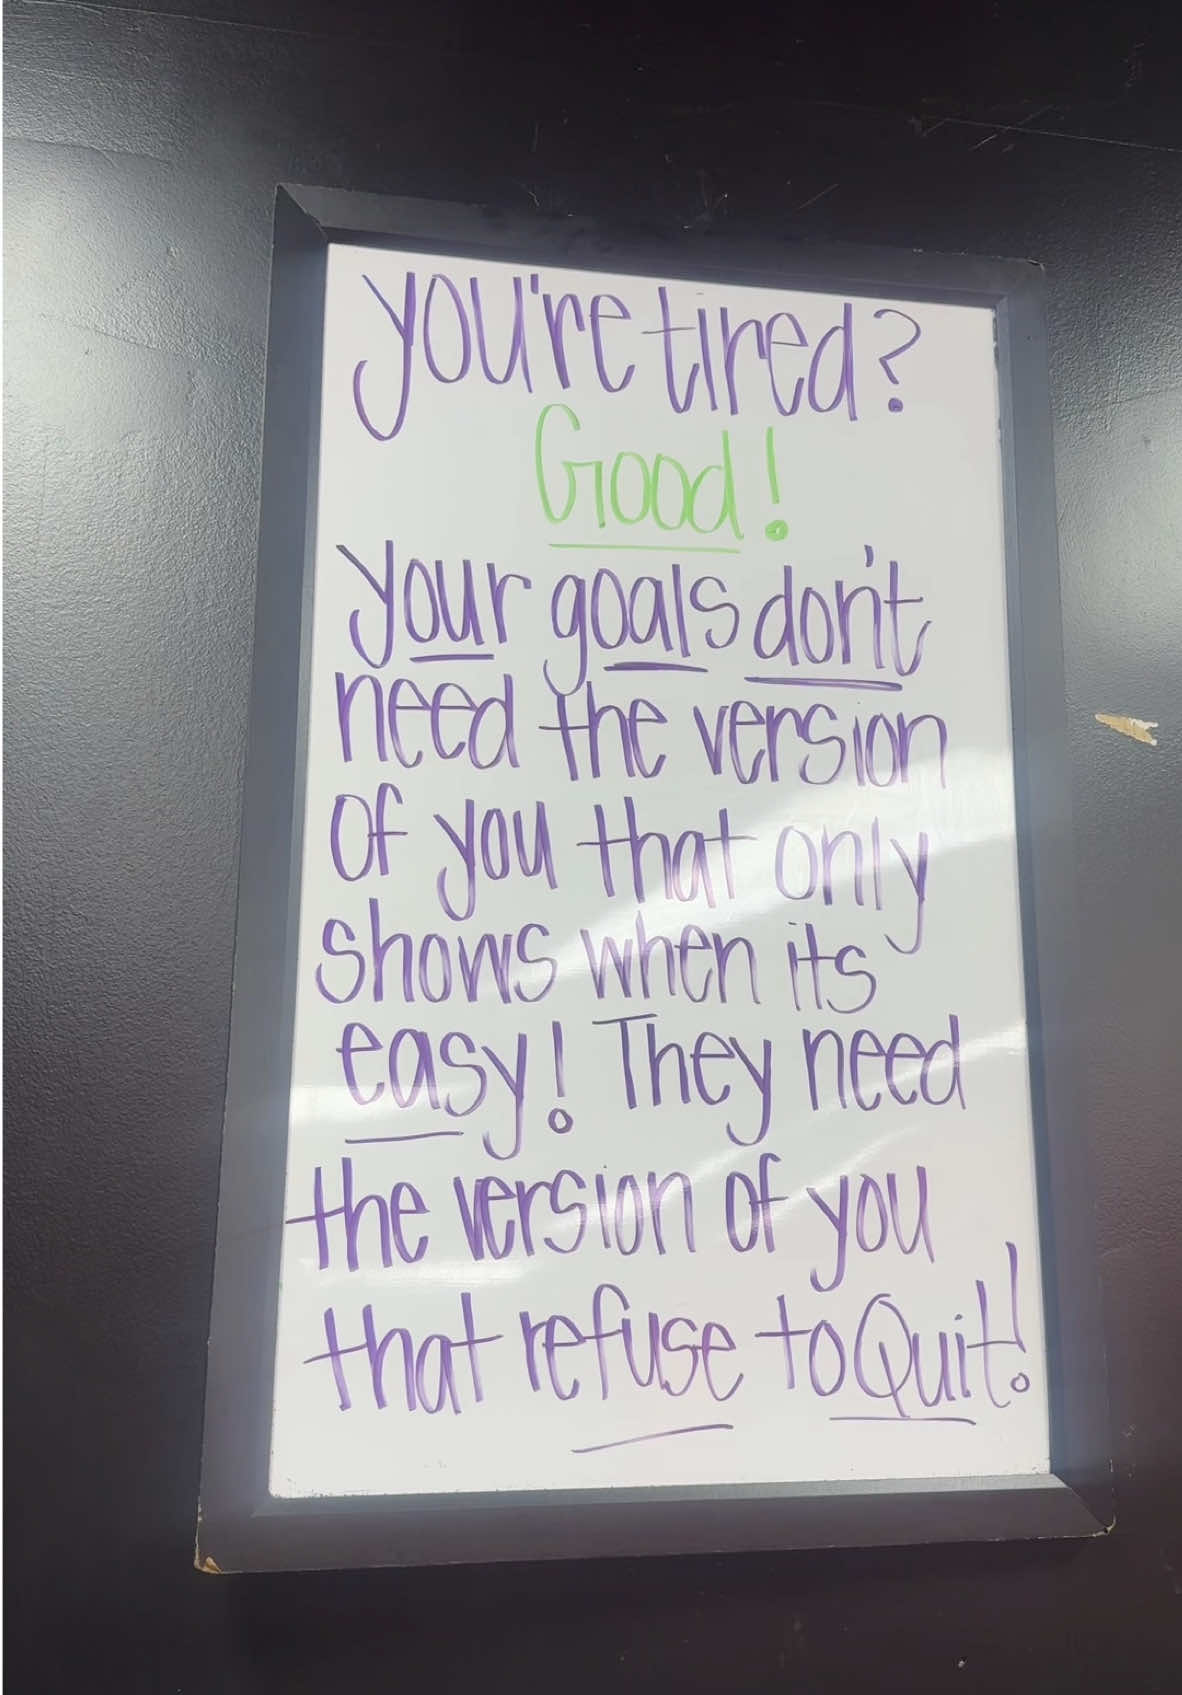 you're tired?
Good!
your goals don't
need the version
of you that only
shows when its
easy! They need
the version of you
that refuse to Quit!